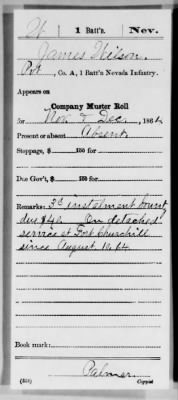 W | 1 Batt'n. | Nev.
James Wilson.
Pvt, Co. A, 1 Batt'n Nevada Infantry.
Appears on
Company Muster Roll
for Nov & Dec, 1864.
Present or absent Absent.
Stoppage, $ 100 for
Due Gov't, $ 100 for
Remarks: 3d instalment bounty
due $40. On detached
service at Fort Churchill
since August 10.64.
Book mark:
Palmer
(358) Copyist